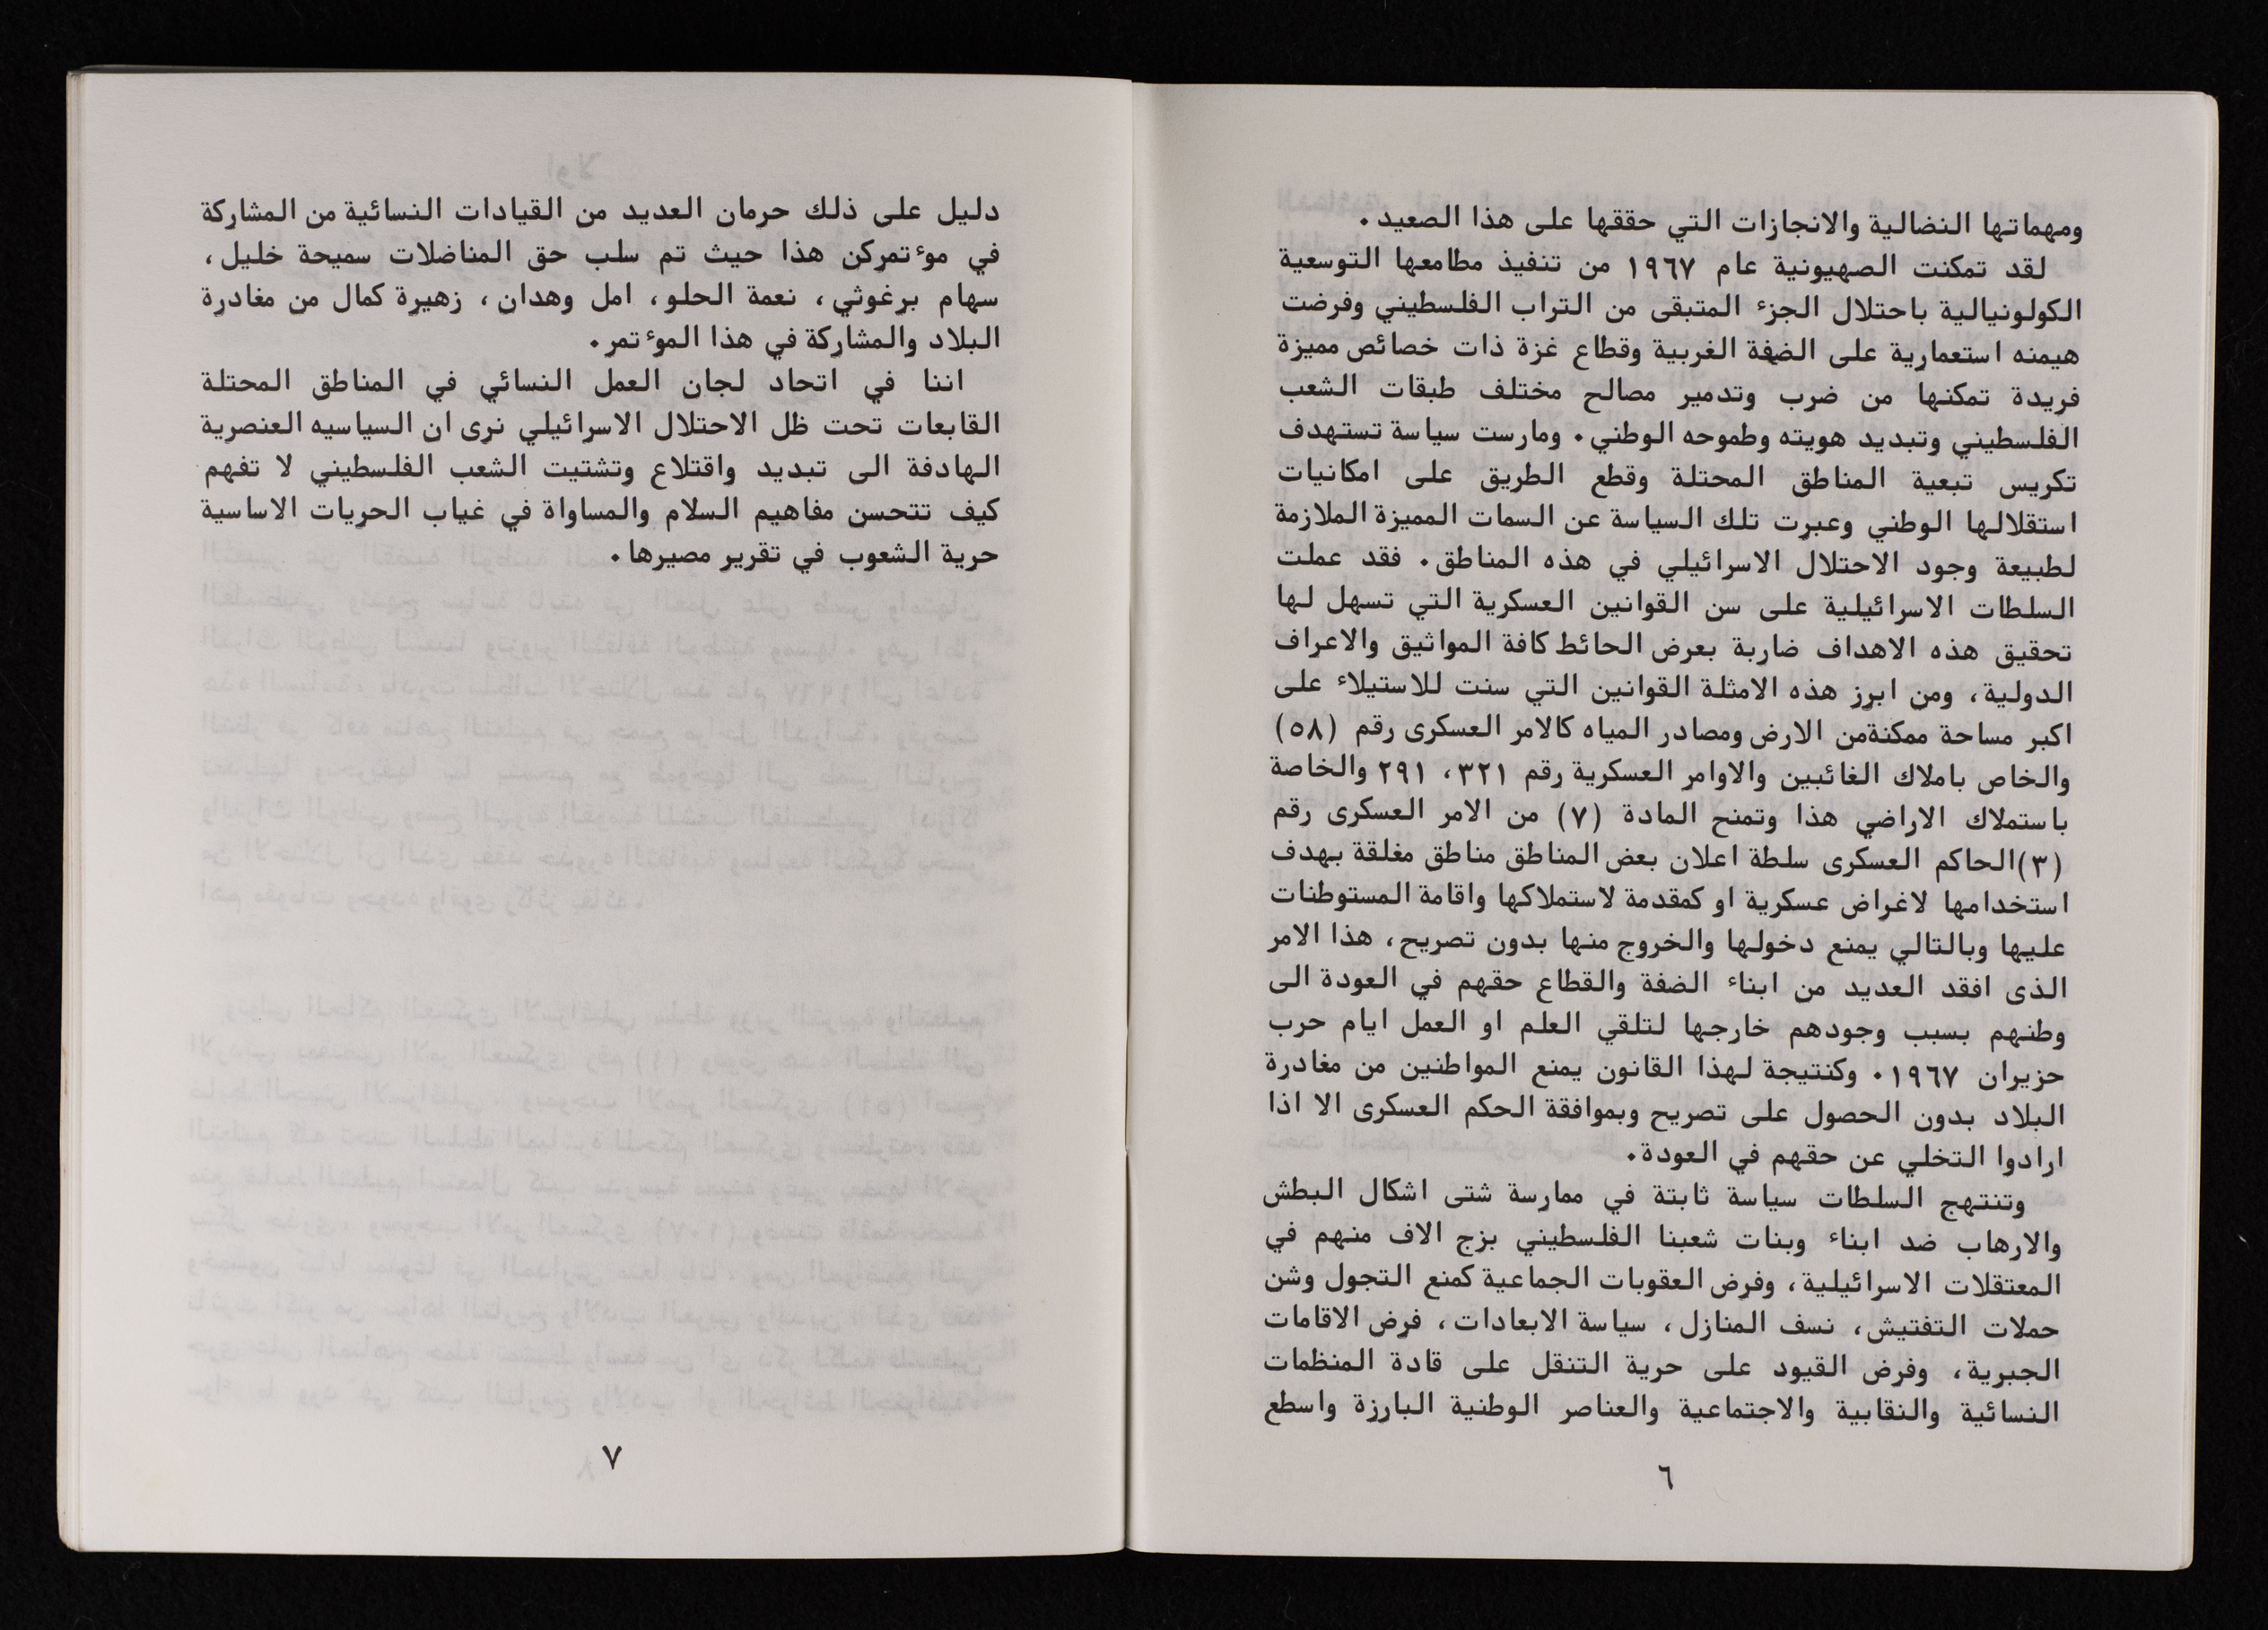 ومهماتها النضالية والانجازات التي حققها على هذا الصعيد.
لقد تمكنت الصهيونية عام ١٩٦٧ من تنفيذ مطامعها التوسعية
الكولونيالية باحتلال الجزء المتبقى من التراب الفلسطيني وفرضت
هيمنه استعمارية على الضفة الغربية وقطاع غزة ذات خصائص مميزة
فريدة تمكنها من ضرب وتدمير مصالح مختلف طبقات الشعب
الفلسطيني وتبديد هويته وطموحه الوطني. ومارست سياسة تستهدف
تكريس تبعية المناطق المحتلة وقطع الطريق على امكانيات
استقلالها الوطني وعبرت تلك السياسة عن السمات المميزة الملازمة
لطبيعة وجود الاحتلال الاسرائيلي في هذه المناطق. فقد عملت
السلطات الاسرائيلية على سن القوانين العسكرية التي تسهل لها
تحقيق هذه الاهداف ضاربة بعرض الحائط كافة المواثيق والاعراف
الدولية، ومن ابرز هذه الامثلة القوانين التي سنت للاستيلاء على
اكبر مساحة ممكنةمن الارض ومصادر المياه كالامر العسكرى رقم (٥٨)
والخاص باملاك الغائبين والاوامر العسكرية رقم ٣٢١، ٢٩١ والخاصة
باستملاك الاراضي هذا وتمنح المادة (٧) من الامر العسكرى رقم
(٣)الحاكم العسكرى سلطة اعلان بعض المناطق مناطق مغلقة بهدف
استخدامها لاغراض عسكرية او كمقدمة لاستملاكها واقامة المستوطنات
عليها وبالتالي يمنع دخولها والخروج منها بدون تصريح، هذا الامر
الذى افقد العديد من ابناء الضفة والقطاع حقهم في العودة الى
وطنهم بسبب وجودهم خارجها لتلقي العلم او العمل ايام حرب
حزيران ١٩٦٧. وكنتيجة لهذا القانون يمنع المواطنين من مغادرة
البلاد بدون الحصول على تصريح وبموافقة الحكم العسكرى الا اذا
ارادوا التخلي عن حقهم في العودة.
وتنتهج السلطات سياسة ثابتة في ممارسة شتى اشكال البطش
والارهاب ضد ابناء وبنات شعبنا الفلسطيني بزج الاف منهم في
المعتقلات الاسرائيلية، وفرض العقوبات الجماعية كمنع التجول وشن
حملات التفتيش، نسف المنازل، سياسة الابعادات، فرض الاقامات
الجبرية، وفرض القيود على حرية التنقل على قادة المنظمات
النسائية والنقابية والاجتماعية والعناصر الوطنية البارزة واسطع
٦
دليل على ذلك حرمان العديد من القيادات النسائية من المشاركة
في موءتمركن هذا حيث تم سلب حق المناضلات سميحة خليل،
سهام برغوثي، نعمة الحلو، امل وهدان، زهيرة كمال من مغادرة
البلاد والمشاركة في هذا الموءتمر.
اننا في اتحاد لجان العمل النسائي في المناطق المحتلة
القابعات تحت ظل الاحتلال الاسرائيلي نرى ان السياسيه العنصرية
الهادفة الى تبديد واقتلاع وتشتيت الشعب الفلسطيني لا تفهم
كيف تتحسن مفاهيم السلام والمساواة في غياب الحريات الاساسية
حرية الشعوب في تقرير مصيرها.
٧